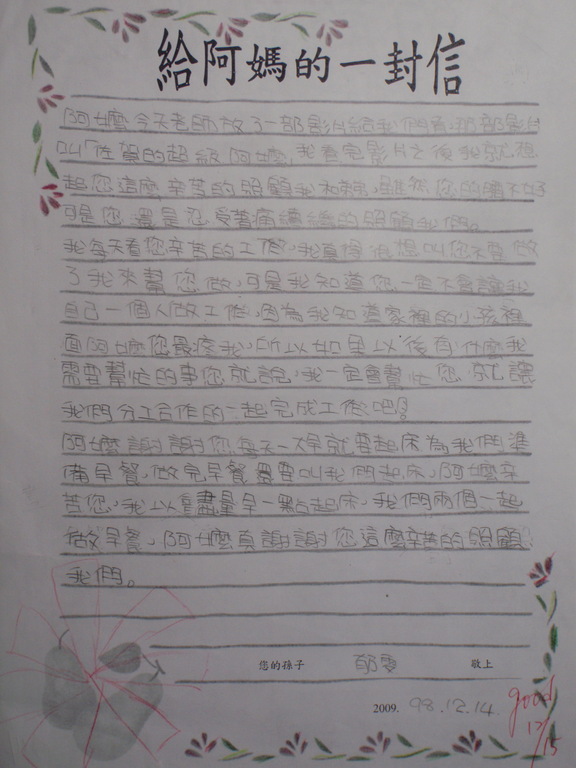 給阿媽的一封信
阿嬤今天老師放了一部影片給我們看,那部影片
叫「佐賀的超級阿嬤,我看完影片之後我就想
起您這麼辛苦的照顧我和弟弟,雖然您的腳不好
可是您還是忍受著痛繼續的照顧我們。
我每天看您辛苦的工作,我真得很想叫您不要做
了我來幫您做,可是我知道您一定不會讓我
自己一個人做工作,因為我知道家裡的小孩裡
面阿嬤您最疼我,所以如果以後有什麼我
需要幫忙的事您就說,我一定會幫忙您,就讓
我們分工合作的一起完成工作吧!
阿嬤謝謝您每天一大早就要起床為我們準
備早餐,做完早餐還要叫我們起床,阿嬤辛
苦您,我以後盡量早一點起床,我們兩個一起
做早餐,阿嬤真謝謝您這麼辛苦的照顧
我們。
您的孫子 郁雯 敬上
2009. 98.12.14.
good
12/15